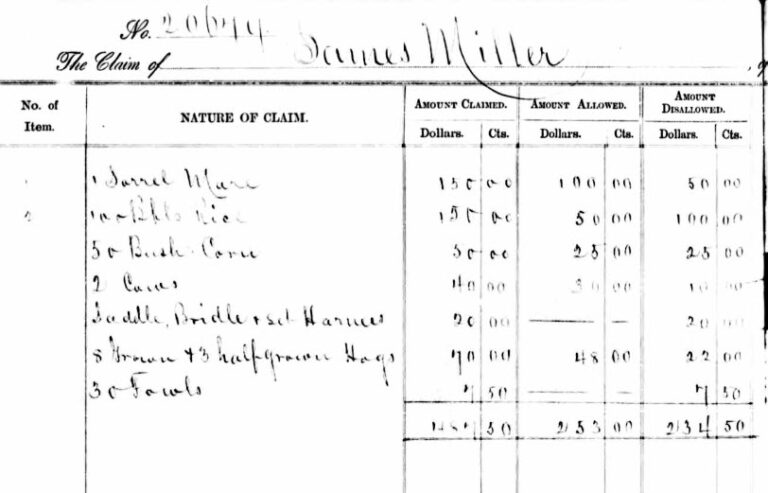 No.
The Claim of James Miller
No. of Item. NATURE OF CLAIM. AMOUNT CLAIMED. AMOUNT ALLOWED. AMOUNT DISALLOWED.
Dollars. Cts. Dollars. Cts. Dollars. Cts.
1 Sorrel Mare 150 00 100 00 50 00
Rice 150 00 50 00 100 00
50 Bush Corn 50 00 25 00 25 00
2 Cows 40 00 30 00 10 00
Saddle, Bridle & set Harness 20 00 — — 20 00
8 Grown & 3 half grown Hogs 70 00 48 00 22 00
30 Fowls 7 50 — — 7 50
487 50 253 00 234 50